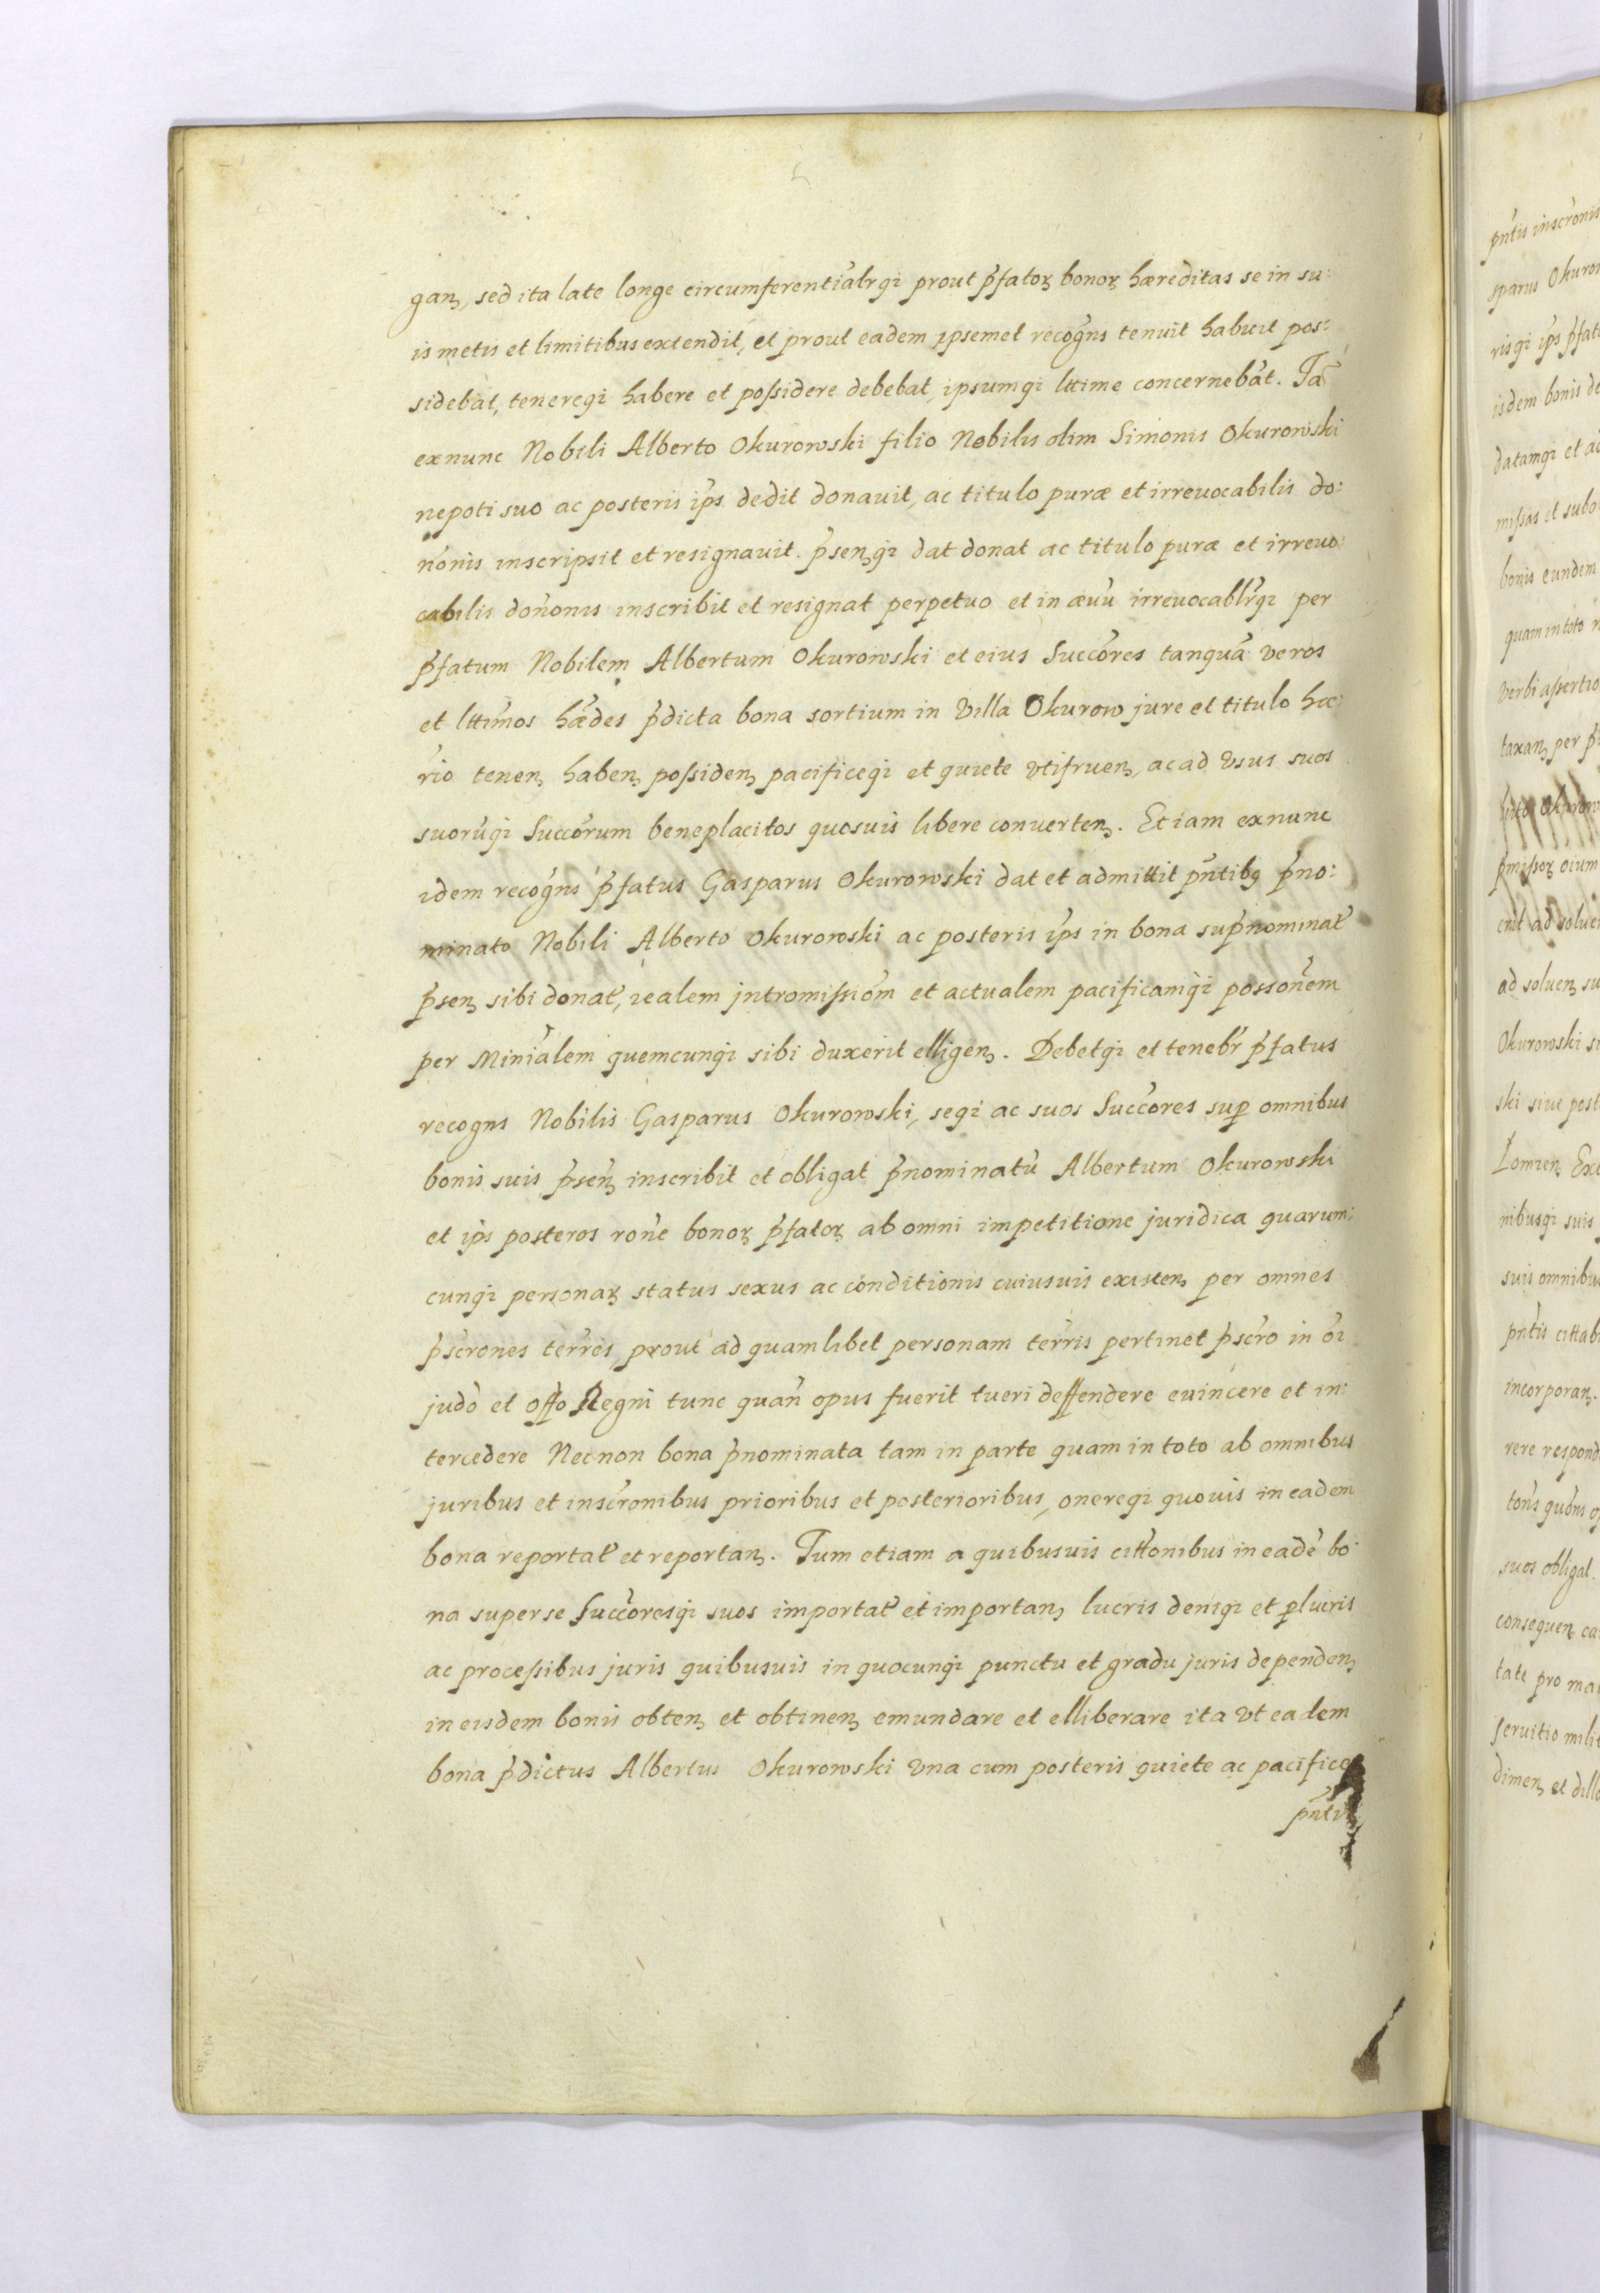 ganʒ, sed ita late longe circumferentialr̃qi prout p̃fatoʒ bonoʒ hæreditas se in su:
is metis et limitibus extendit, et prout eadem ipsemet recogñs tenuit habuit pos:
sidebat, tenereqi habere et poſsidere debebat, ipsumqi lttime concernebat. Ia͠
exnunc Nobili Alberto Okurowski filio Nobilis olim Simonis Okurowski
nepoti suo ac posteris ip̃s dedit donauit, ac titulo puræ et irreuocabilis do:
ñonis inscripsit et resignauit. p̃senʒqi dat donat ac titulo puræ et irreuo:
cabilis doñonis inscribit et resignat perpetuo et in æuũ irreuocablr̃qi per
p̃fatum Nobilem Albertum Okurowski et eius Succõres tanquã veros
et lttimos hæ̃des p̃dicta bona sortium in Villa Okurow jure et titulo hæ:
r̃io tenenʒ habenʒ poſsidenʒ pacificeqi et quiete vtifruenʒ, ac ad vsus suos
suorũqi Succõrum beneplacitos quosuis libere conuertenʒ. Etiam exnunc
idem recogñs p̃fatus Gasparus Okurowski dat et admittit pñtibʒ p̃no:
minato Nobili Alberto Okurowski ac posteris ip̃s in bona sup̃nominat̃
p̃senʒ sibi donat̃, realem jntromiſsiõm et actualem pacificamqi possoñem
per Miniãlem quemcunqi sibi duxerit elligenʒ. Debetqi et tenebr̃ p̃fatus
recogñs Nobilis Gasparus Okurowski, seqi ac suos Succõres sup omnibus
bonis suis p̃senʒ inscribit et obligat p̃nominatũ Albertum Okurowski
et ip̃s posteros roñe bonoʒ p̃fatoʒ ab omni impetitione juridica quarum:
cunqi personaʒ status sexus ac conditionis cuiusuis existenʒ per omnes
p̃scr̃ones terr̃es, prout ad quamlibet personam terr̃is pertinet p̃scr̃o in oĩ
judõ et oſſo Regni tunc quañ opus fuerit tueri deffendere euincere et in:
tercedere Necnon bona p̃nominata tam in parte quam in toto ab omnibus
juribus et inscr̃onibus prioribus et posterioribus, onereqi quouis in eadem
bona reportat̃ et reportanʒ. Tum etiam a quibusuis cittõnibus in eadẽ bo:
na super se Succõresqi suos importat̃ et importanʒ lucris deniqi et plucris
ac proceſsibus juris quibusuis in quocunqi punctu et gradu juris dependenʒ
in eisdem bonis obtenʒ et obtinenʒ emundare et elliberare ita vt eadem
bona p̃dictus Albertus Okurowski vna cum posteris quiete ac pacifice
pñtis
pñtis inscr̃onis
sparus Okurow
risqi ip̃s p̃fat
isdem bonis de
datamqi et ac
miſsas et subo
bonis eundem
quam in toto
verbi aſsertio
taxanʒ per
p̃miſsoʒ oium
erit ad soluen
ad soluenʒ su
Okurowski
ski siue post
Lomzenʒ Exc
nibusqi suis
suis omnibus
pñtis cittab
incorporanʒ.
rere respond
suos obligat.
consequenʒ ca
tate pro ma
seruitio milit
dimenʒ et dill